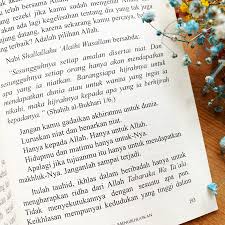 dan ada lagi kegelisahan tentang dia yang tak
jung datang, karena sekarang kamu percaya, bahwa
dia adalah pilihan Allah.
Nabi Shallallahu 'Alaihi Wasallam bersabda:
"Sesungguhnya setiap amalan disertai niat. Dan
sesungguhnya setiap orang hanya akan mendapatkan
apa yang ia niatkan. Barangsiapa hijrahnya untuk
mendapatkan dunia atau untuk wanita yang ingin ia
nikahi, maka hijrahnya kepada apa yang ia berhijrah
kepadanya." (Shahih al-Bukhari 1/6.)
Jangan kamu gadaikan akhiratmu untuk dunia.
Luruskan niat dan benarkan niat.
Hanya kepada Allah. Hanya untuk Allah.
Hidupmu dan matimu hanya untuk-Nya.
Apalagi jika tujuanmu itu hanya untuk
makhluk-Nya. Janganlah sampai terjadi.
Itulah tauhid, ikhlas dalam beribadah hanya untuk
mengharapkan ridha dari Allah Tabaraka Wa Ta'ala.
Tidak menyekutukannya dengan sesuatu apa pun.
Keikhlasan mempunyai kedudukan yang tinggi dalam
193